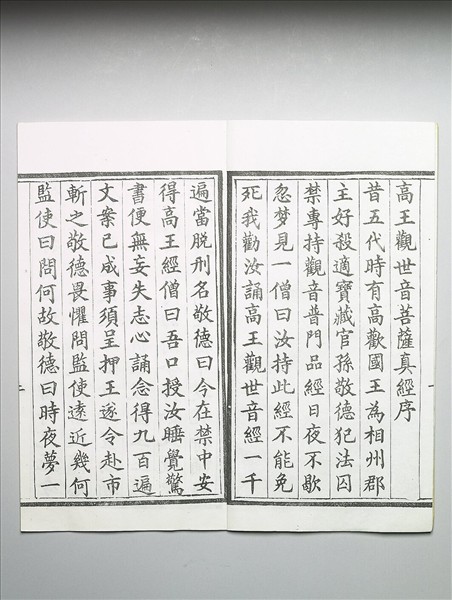 高王觀世音菩薩真經序
昔五代時有高歡國王為相州郡
主好殺適寶藏官孫敬德犯法囚
禁專持觀音普門品經日夜不歇
忽梦見一僧曰汝持此經不能免
死我勸汝誦高王觀世音經一千
遍當脱刑名敬德曰今在禁中安
得高王經僧曰吾口授汝睡覺驚
書便無妄失志心誦念得九百遍
文案已成事須呈押王逐令赴市
斬之敬德畏懼問監使遠近幾何
監使曰問何故敬德曰時夜夢一